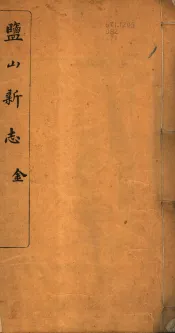 鹽山新志
金